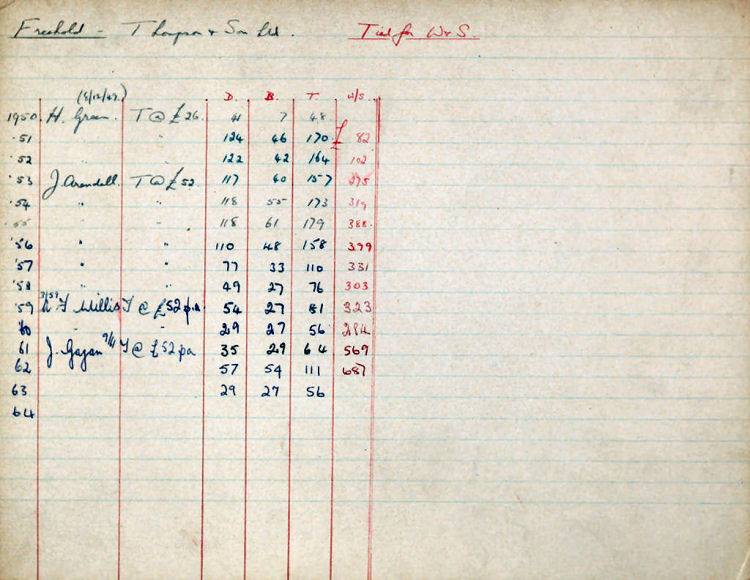 Freehold - Thompson & Son Ltd. Tied for W & S.
(8/12/49.) D. B. T w/s.
1950 H. Green. T @ £26. 41 7 48
'51 " " 124 46 170 £ 82
'52 " " 122 42 164 102
'53 J. Arendell. T @ £52. 117 40 157 275
'54 " " 118 55 173 319
'55 " " 118 61 179 388
'56 " " 110 48 158 399
'57 " " 77 33 110 331
'58 " " 49 27 76 303
'59 F Willis T @ £52 p.a 54 27 81 323
'60 " " 29 27 56 284
61 J. Gajan T @ £52 pa 35 29 64 569
62 57 54 111 687
63 29 27 56
64